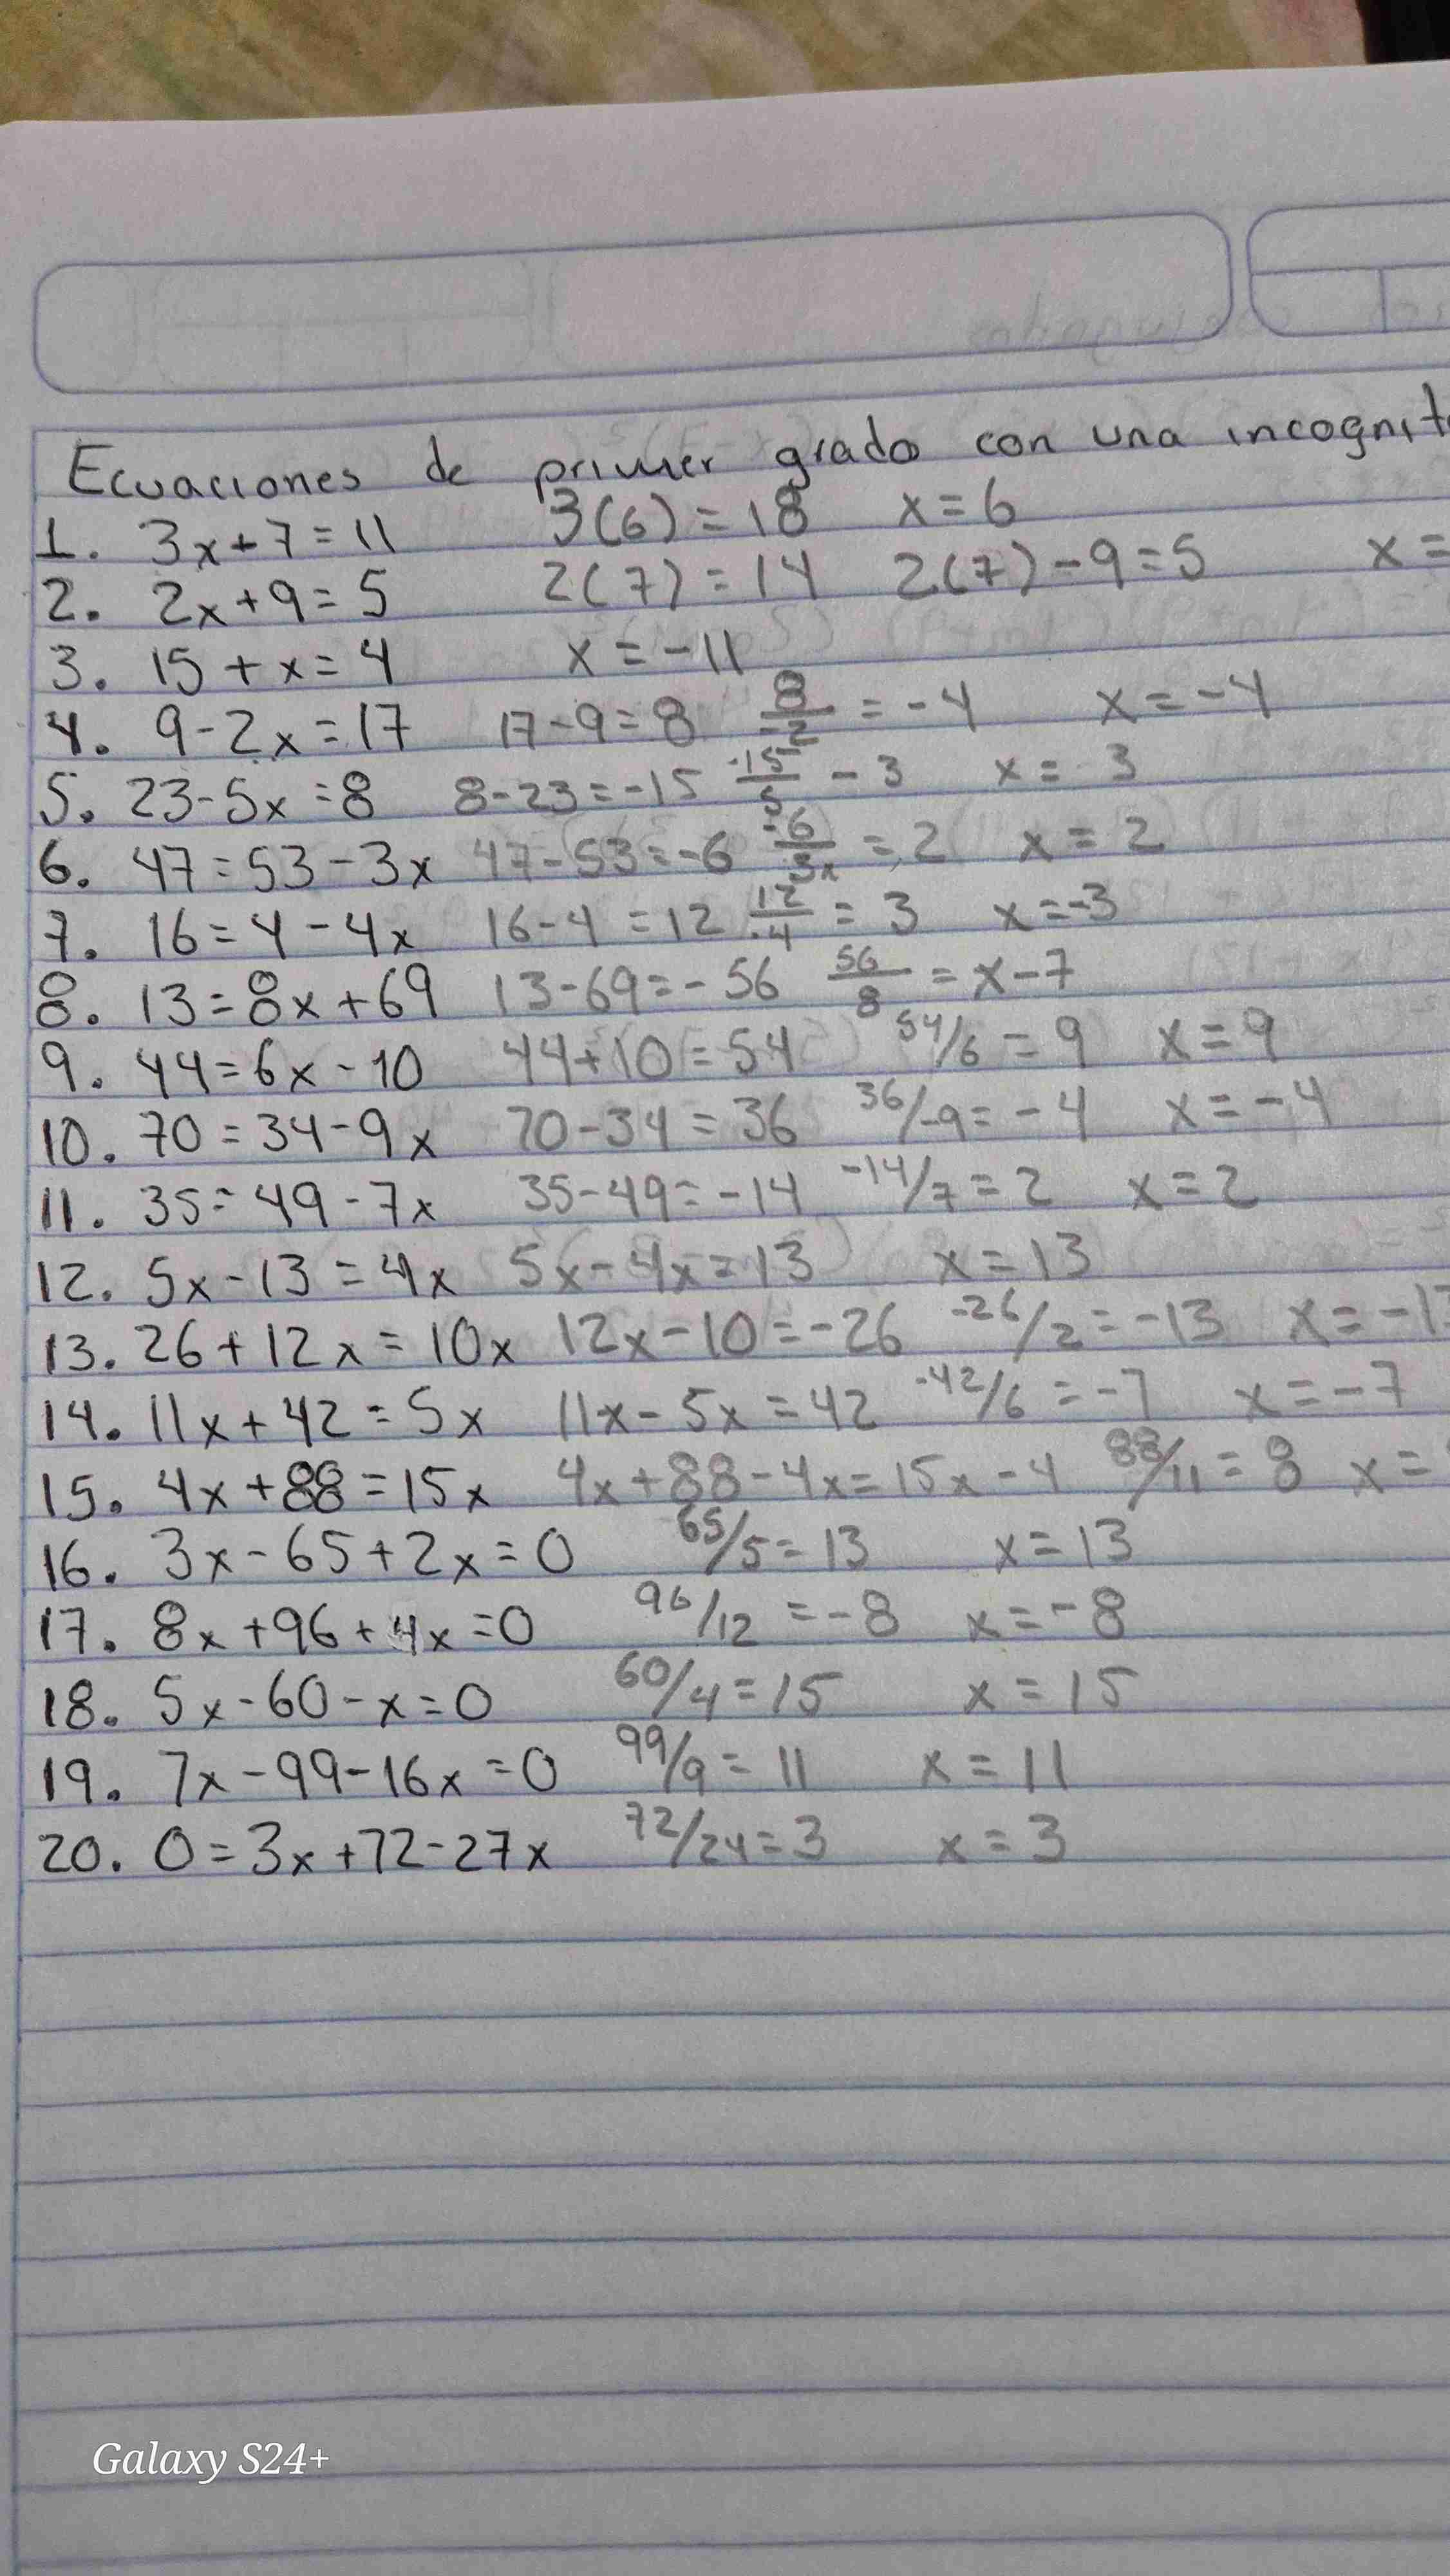 Ecuaciones de primer grado con una incognit
1. 3x+7=11 3(6)=18 x=6
2. 2x+9=5 2(7)=14 2(7)-9=5 x=
3. 15+x=4 x=-11
4. 9-2x=17 17-9=8 8/-2 = -4 x=-4
5. 23-5x=8 8-23=-15 -15/5 - 3 x= 3
6. 47=53-3x 47-53=-6 -6/3x = 2 x=2
7. 16=4-4x 16-4=12 12/-4 = 3 x=-3
8. 13=8x+69 13-69=-56 56/8 = x-7
9. 44=6x-10 44+10=54 54/6=9 x=9
10. 70=34-9x 70-34=36 36/-9=-4 x=-4
11. 35=49-7x 35-49=-14 -14/7=2 x=2
12. 5x-13=4x 5x-4x=13 x=13
13. 26+12x=10x 12x-10=-26 -26/2=-13 x=-13
14. 11x+42=5x 11x-5x=42 -42/6=-7 x=-7
15. 4x+88=15x 4x+88-4x=15x-4 88/11=8 x=
16. 3x-65+2x=0 65/5=13 x=13
17. 8x+96+4x=0 96/12=-8 x=-8
18. 5x-60-x=0 60/4=15 x=15
19. 7x-99-16x=0 99/9=11 x=11
20. 0=3x+72-27x 72/24=3 x=3
Galaxy S24+